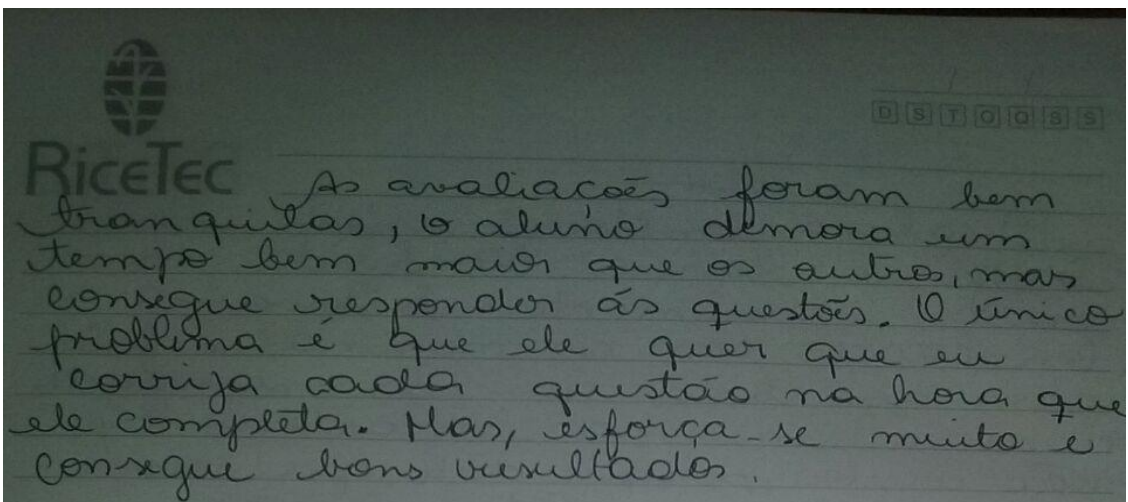 D S T Q Q S S
RiceTec As avaliações foram bem
tranquilas, o aluno demora um
tempo bem maior que os outros, mas
consegue responder ás questões. O único
problema é que ele quer que eu
corrija cada questão na hora que
ele completa. Mas, esforça-se muito e
consegue bons resultados.